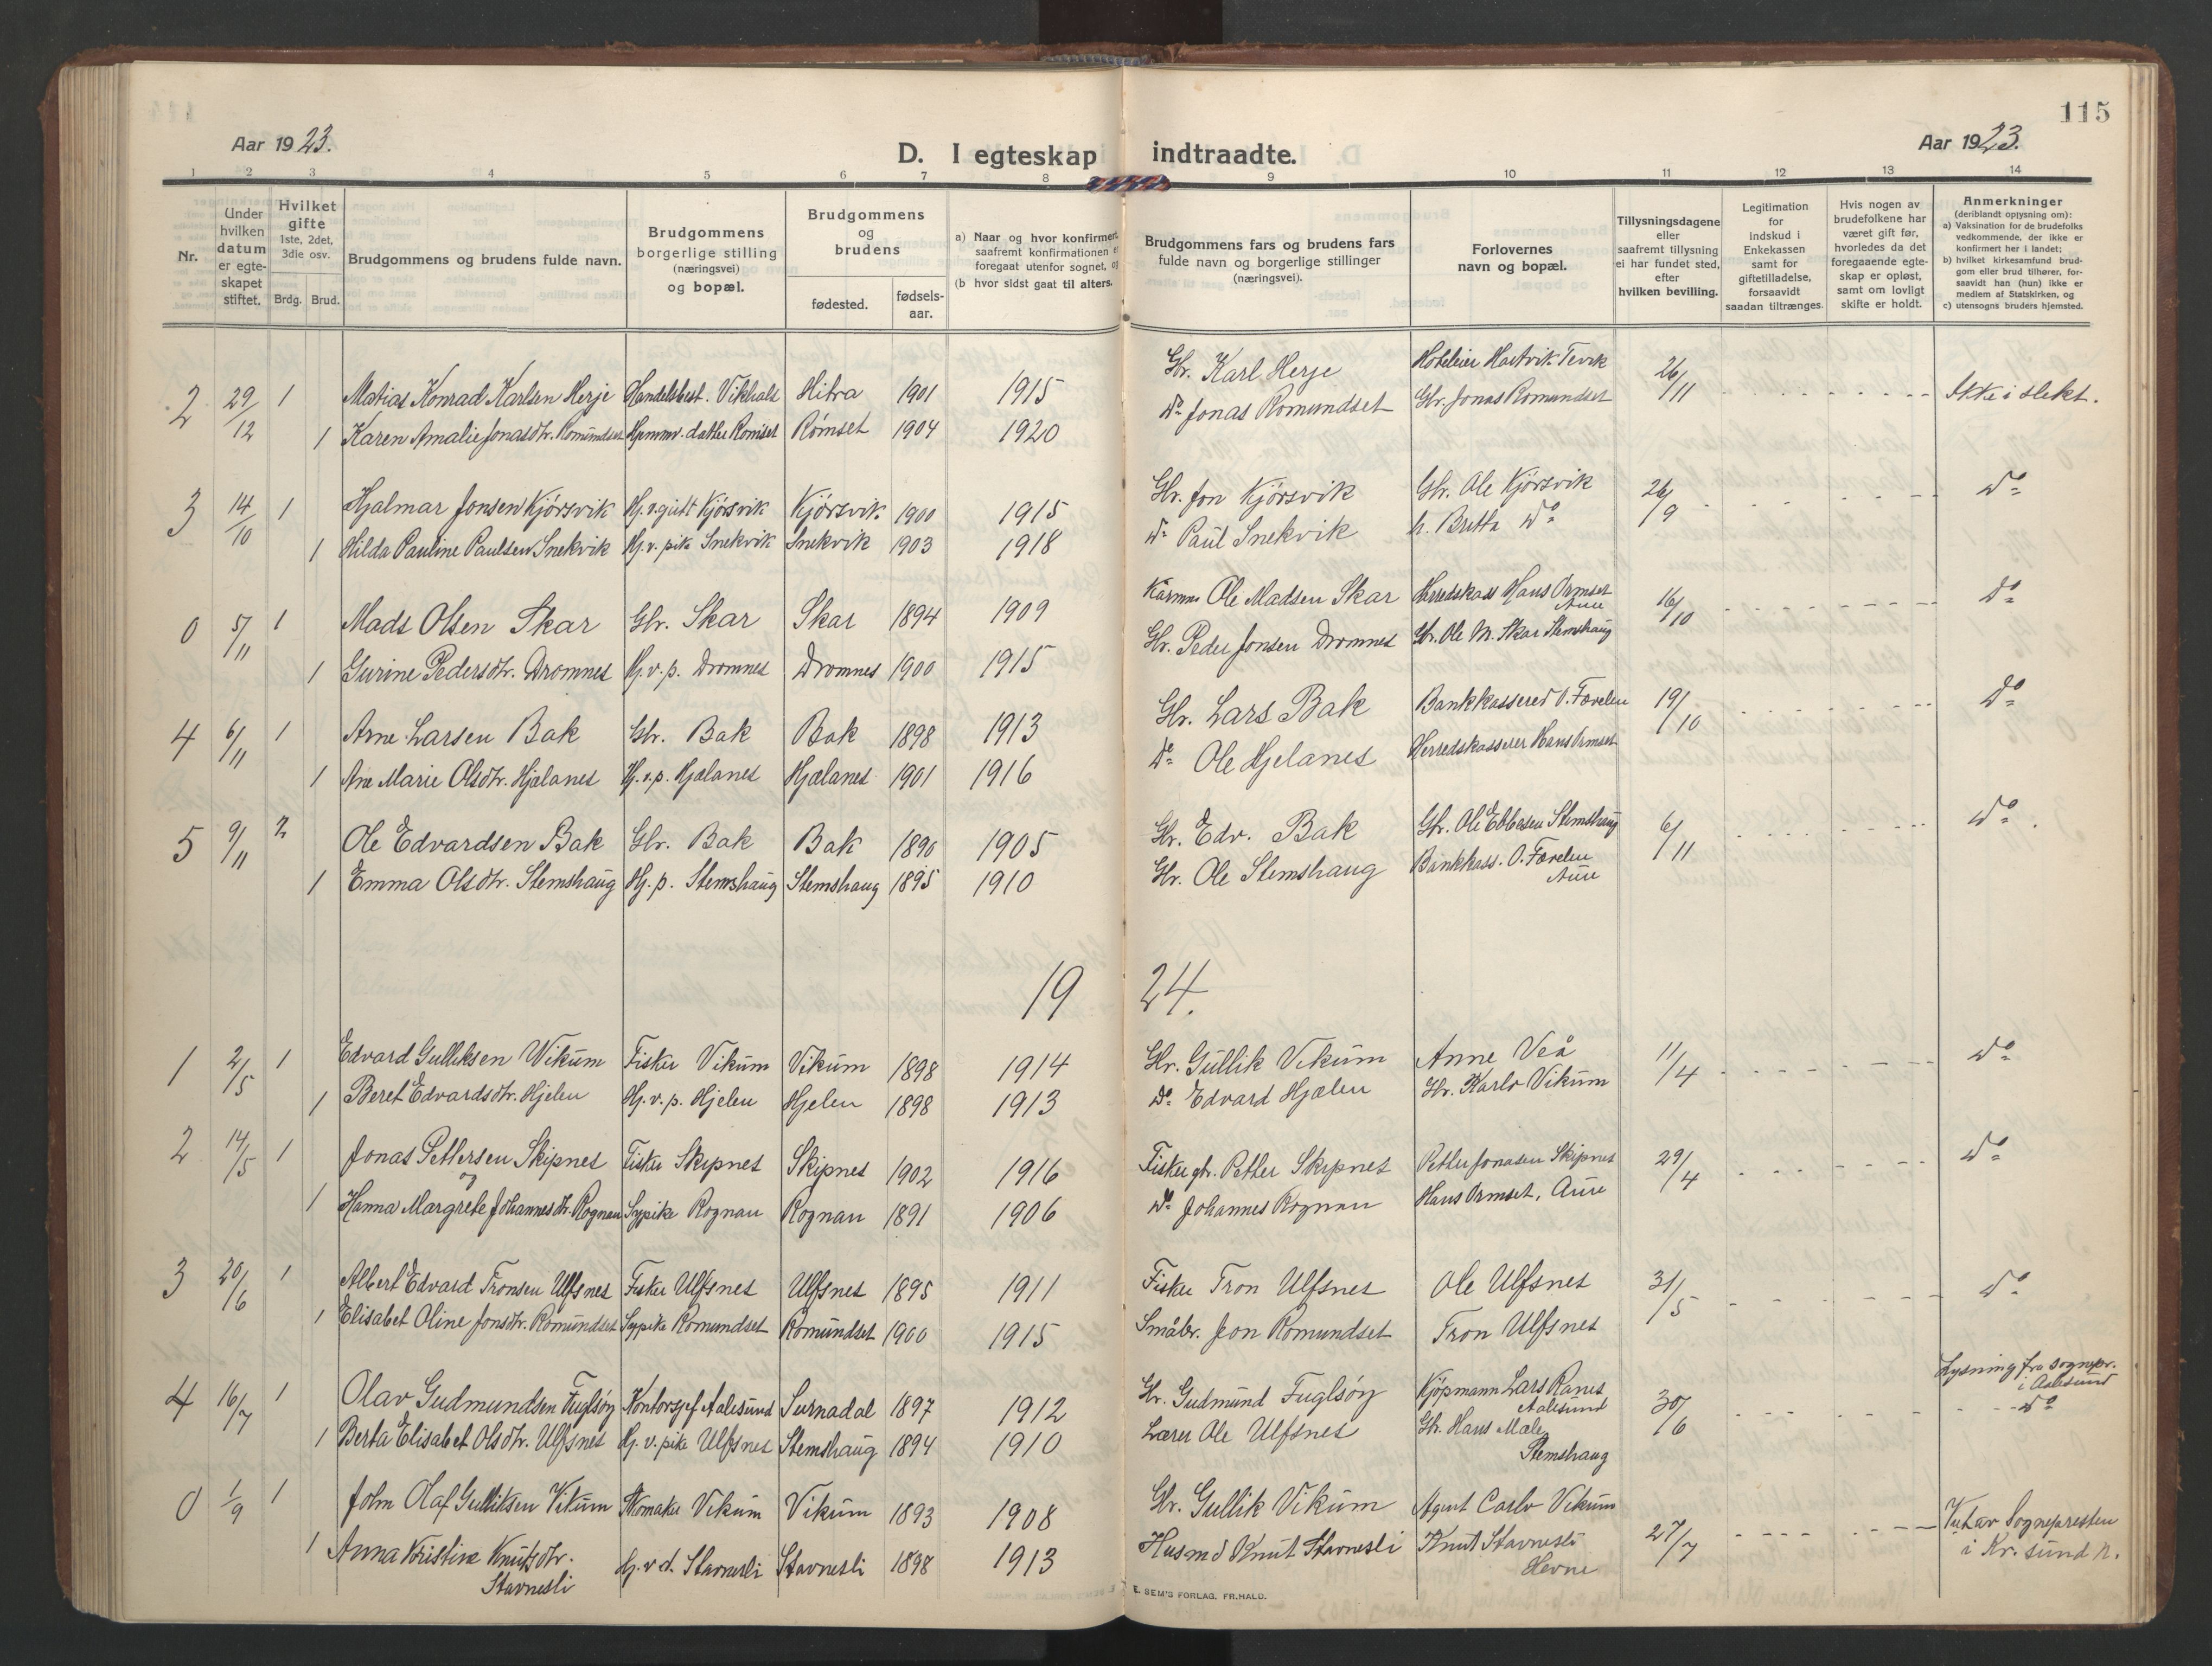 115
Aar 1923.
D. I egteskap indtraadte.
Aar 1923.
1 2 3 4 5 6 7 8 9 10 11 12 13 14
Nr.
Under hvilken datum er egteskapet stiftet.
Hvilket gifte 1ste, 2det, 3die osv.
Brdg. Brud.
Brudgommens og brudens fulde navn.
Brudgommens borgerlige stilling (næringsvei) og bopæl.
Brudgommens og brudens
fødested.
fødselsaar.
a) Naar og hvor konfirmert, saafremt konfirmationen er foregaat utenfor sognet, og
(b hvor sidst gaat til alters.
Brudgommens fars og brudens fars fulde navn og borgerlige stillinger (næringsvei).
Forlovernes navn og bopæl.
Tillysningsdagene eller saafremt tillysning ei har fundet sted, efter hvilken bevilling.
Legitimation for indskud i Enkekassen samt for giftetilladelse, forsaavidt saadan tiltrænges.
Hvis nogen av brudefolkene har været gift før, hvorledes da det foregaaende egteskap er opløst, samt om lovligt skifte er holdt.
Anmerkninger (deriblandt opjysning om):
a) Vaksination for de brudefolks vedkommende, der ikke er konfirmert her i landet;
b) hvilket kirkesamfund brudgom eller brud tilhører, forsaavidt han (hun) ikke er medlem af Statskirken, og
c) utensogns bruders hjemsted.
2 29/12 1 Matias Konrad Karlsen Herje Handelsbest. Vikhals Hitra 1901 1915 Gbr. Karl Herje Hoteleier Hartvik Tevik 26/11 Ikke i slekt.
1 Karen Amalie Jonasdtr. Romundset Hjemmv. datter Romset Romset 1904 1920 Do Jonas Romundset Gbr. Jonas Romundset
3 14/10 1 Hjalmar Jonsen Kjørsvik Hj. v. gutt Kjørsvik Kjørsvik 1900 1915 Gbr. Jon Kjørsvik Gbr. Ole Kjørsvik 26/9 Do
1 Hilda Pauline Paulsen Snekvik Hj. v. pike Snekvik Snekvik 1903 1918 Do Paul Snekvik h. Britta Do
0 5/11 1 Mads Olsen Skar Gbr. Skar Skar 1894 1909 Kårmn. Ole Madsen Skar Herredskass Hans Ormset Aure 16/10 Do
1 Gurine Pedersdtr. Dromnes Hj. v. p. Dromnes Dromnes 1900 1915 Gbr. Peder Jonsen Dromnes Gbr. Ole M. Skar Stemshaug
4 6/11 1 Arne Larsen Bak Gbr. Bak Bak 1898 1913 Gbr. Lars Bak Bankkasserer O. Førelen 19/10 Do
1 Ane Marie Olsdtr. Hjælanes Hj. v. p. Hjælanes Hjælanes 1901 1916 Do Ole Hjelanes Herredskasserer Hans Ormset
5 9/11 2 Ole Edvardsen Bak Gbr. Bak Bak 1890 1905 Gbr. Edv. Bak Gbr. Ole Ebbesen Stemshaug 6/11 Do
1 Emma Olsdtr. Stemshaug Hj. p. Stemshaug Stemshaug 1895 1910 Gbr. Ole Stemshaug Bankkass. O. Førelen Aure
19 24.
1 2/5 1 Edvard Gulliksen Wikum Fisker Vikum Vikum 1898 1914 Gbr. Gullik Vikum Anne Veå 11/4 Do
1 Beret Edvardsdtr. Hjelen Hj. v. p. Hjelen Hjelen 1898 1913 Do Edvard Hjælen Gbr. Karlo Vikum
2 14/5 1 Jonas Pettersen Skipnes Fisker Skipnes Skipnes 1902 1916 Fisker gbr. Petter Skipnes Petter Jonasen Skipnes 29/4 Do
og
1 Hanna Margrete Johannesdtr. Rognan Sypike Rognan Rognan 1891 1906 Do Johannes Rognan Hans Ormset, Aure
3 20/6 1 Albert Edvard Tronsen Ulfsnes Fisker Ulfsnes Ulfsnes 1895 1911 Fisker Tron Ulfsnes Ole Ulfsnes 31/5 Do
1 Elisabet Oline Jonsdtr. Romundset Sypike Romundset Romundset 1900 1915 Småbr. Jon Romundset Tron Ulfsnes
4 16/7 1 Olav Gudmundsen Fuglsøy Kontorsjef Aalesund Surnadal 1897 1912 Gbr. Gudmund Fuglsøy Kjøpmann Lars Ranes Aalesund 30/6 Lysning fra sognepr. i Aalesund Do
1 Berta Elisabet Olsdtr. Ulfsnes Hj. v. pike Ulfsnes Stemshaug 1894 1910 Lærer Ole Ulfsnes Gbr. Hans Mæle Stemshaug
0 1/9 1 John Olaf Gulliksen Vikum Skomaker Vikum Vikum 1893 1908 Gbr. Gullik Vikum Agent Carlo Vikum 27/7 Viet av Sognepresten i Kr. sund N.
1 Anna Kristine Knutsdtr. Stavnesli Hj. v. d. Stavnesli Stavnesli 1898 1913 Husmd Knut Stavnesli Knut Stavnesli Hevne
E. SEM'S FORLAG, FR.HALD.